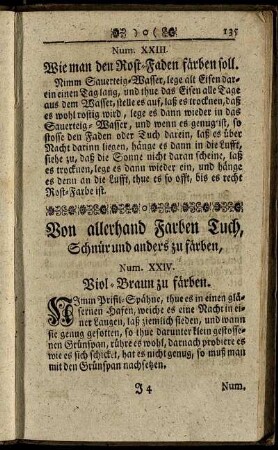 135
Num. XXIII.
Wie man den Rost-Faden färben soll.
Nimm Sauerteig-Wasser, lege alt Eisen dar-
ein einen Tag lang, und thue das Eisen alle Tage
aus dem Wasser, stelle es auf, laß es trocknen, daß
es wohl rostig wird, lege es dann wieder in das
Sauerteig-Wasser, und wenn es genug ist, so
stosse den Faden oder Tuch darein, laß es über
Nacht darinn liegen, hänge es dann in die Lufft,
siehe zu, daß die Sonne nicht daran scheine, laß
es trocknen, lege es dann wieder ein, und hänge
es denn an die Lufft, thue es so offt, bis es recht
Rost-Farbe ist.
Von allerhand Farben Tuch,
Schnür und anders zu färben,
Num. XXIV.
Viol-Braun zu färben.
Nimm Prisili-Spähne, thue es in einen glä-
sernen Hafen, weiche es eine Nacht in ei-
ner Laugen, laß ziemlich sieden, und wann
sie genug gesotten, so thue darunter klein gestosse-
nen Grünspan, rühre es wohl, darnach probiere es
wie es sich schicket, hat es nicht genug, so muß man
mit den Grünspan nachsetzen.
J 4 Num.